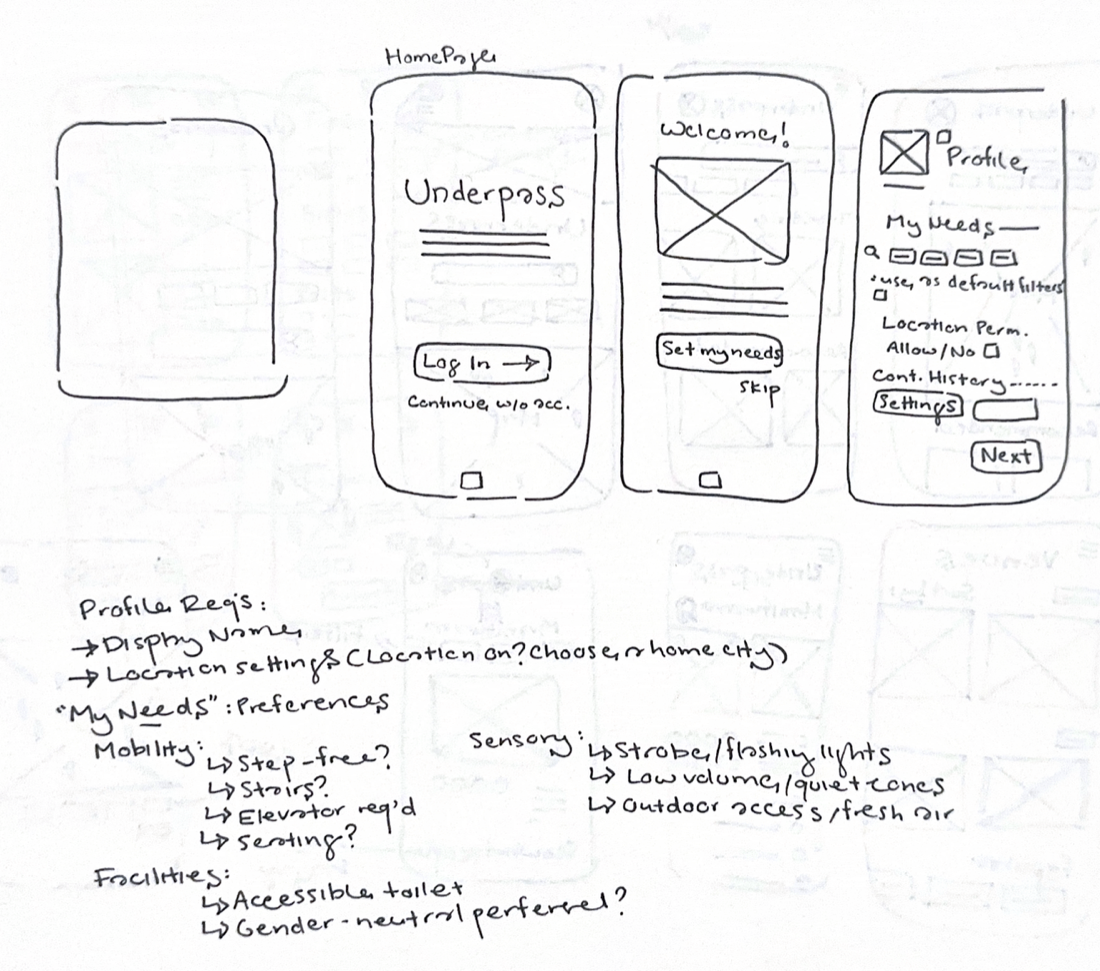 HomePage
Underpass
Log In →
Continue w/o acc.
Welcome!
Set my needs
Skip
Profile
My Needs
*use as default filters
Location Perm.
Allow/No
Cont. History
Settings
Next
Profile Req's:
→ Display Name
→ Location settings (Location on? Choose a home city)
"My Needs": Preferences
Mobility:
↳ Step-free?
↳ Stairs?
↳ Elevator req'd
↳ Seating?
Sensory:
↳ Strobe/flashing lights
↳ Low volume/quiet zones
↳ Outdoor access/fresh air
Facilities:
↳ Accessible toilet
↳ Gender-neutral perferred?